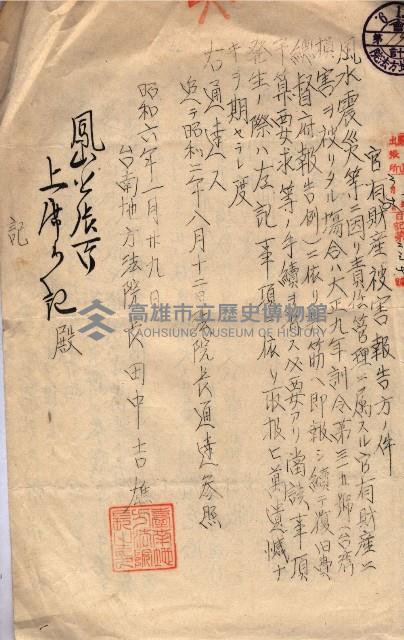 官有財産被害報告方ノ件
風水震災等ニ因リ責 管理ニ属スル官有財産ニ
損害ヲ被リタル場合ハ大正九年訓令第三一九號(台湾
總督府報告例)ニ依リ 筋ヘ即報シ續テ復旧費
予算要求等ノ手續ヲ 必要アリ當該事項
發生ノ際ハ左記事項ニ依リ取扱ヒ萬遺憾ナ
キヲ期セラレ度
右通達ス
追テ昭和二年八月十二日 院長通達参照
昭和六年一月廿九日
台南地方法院長田中吉雄
鳳山出張所
上席書記 殿
記
高雄市立歷史博物館
KAOHSIUNG MUSEUM OF HISTORY
臺南地方法院長之印